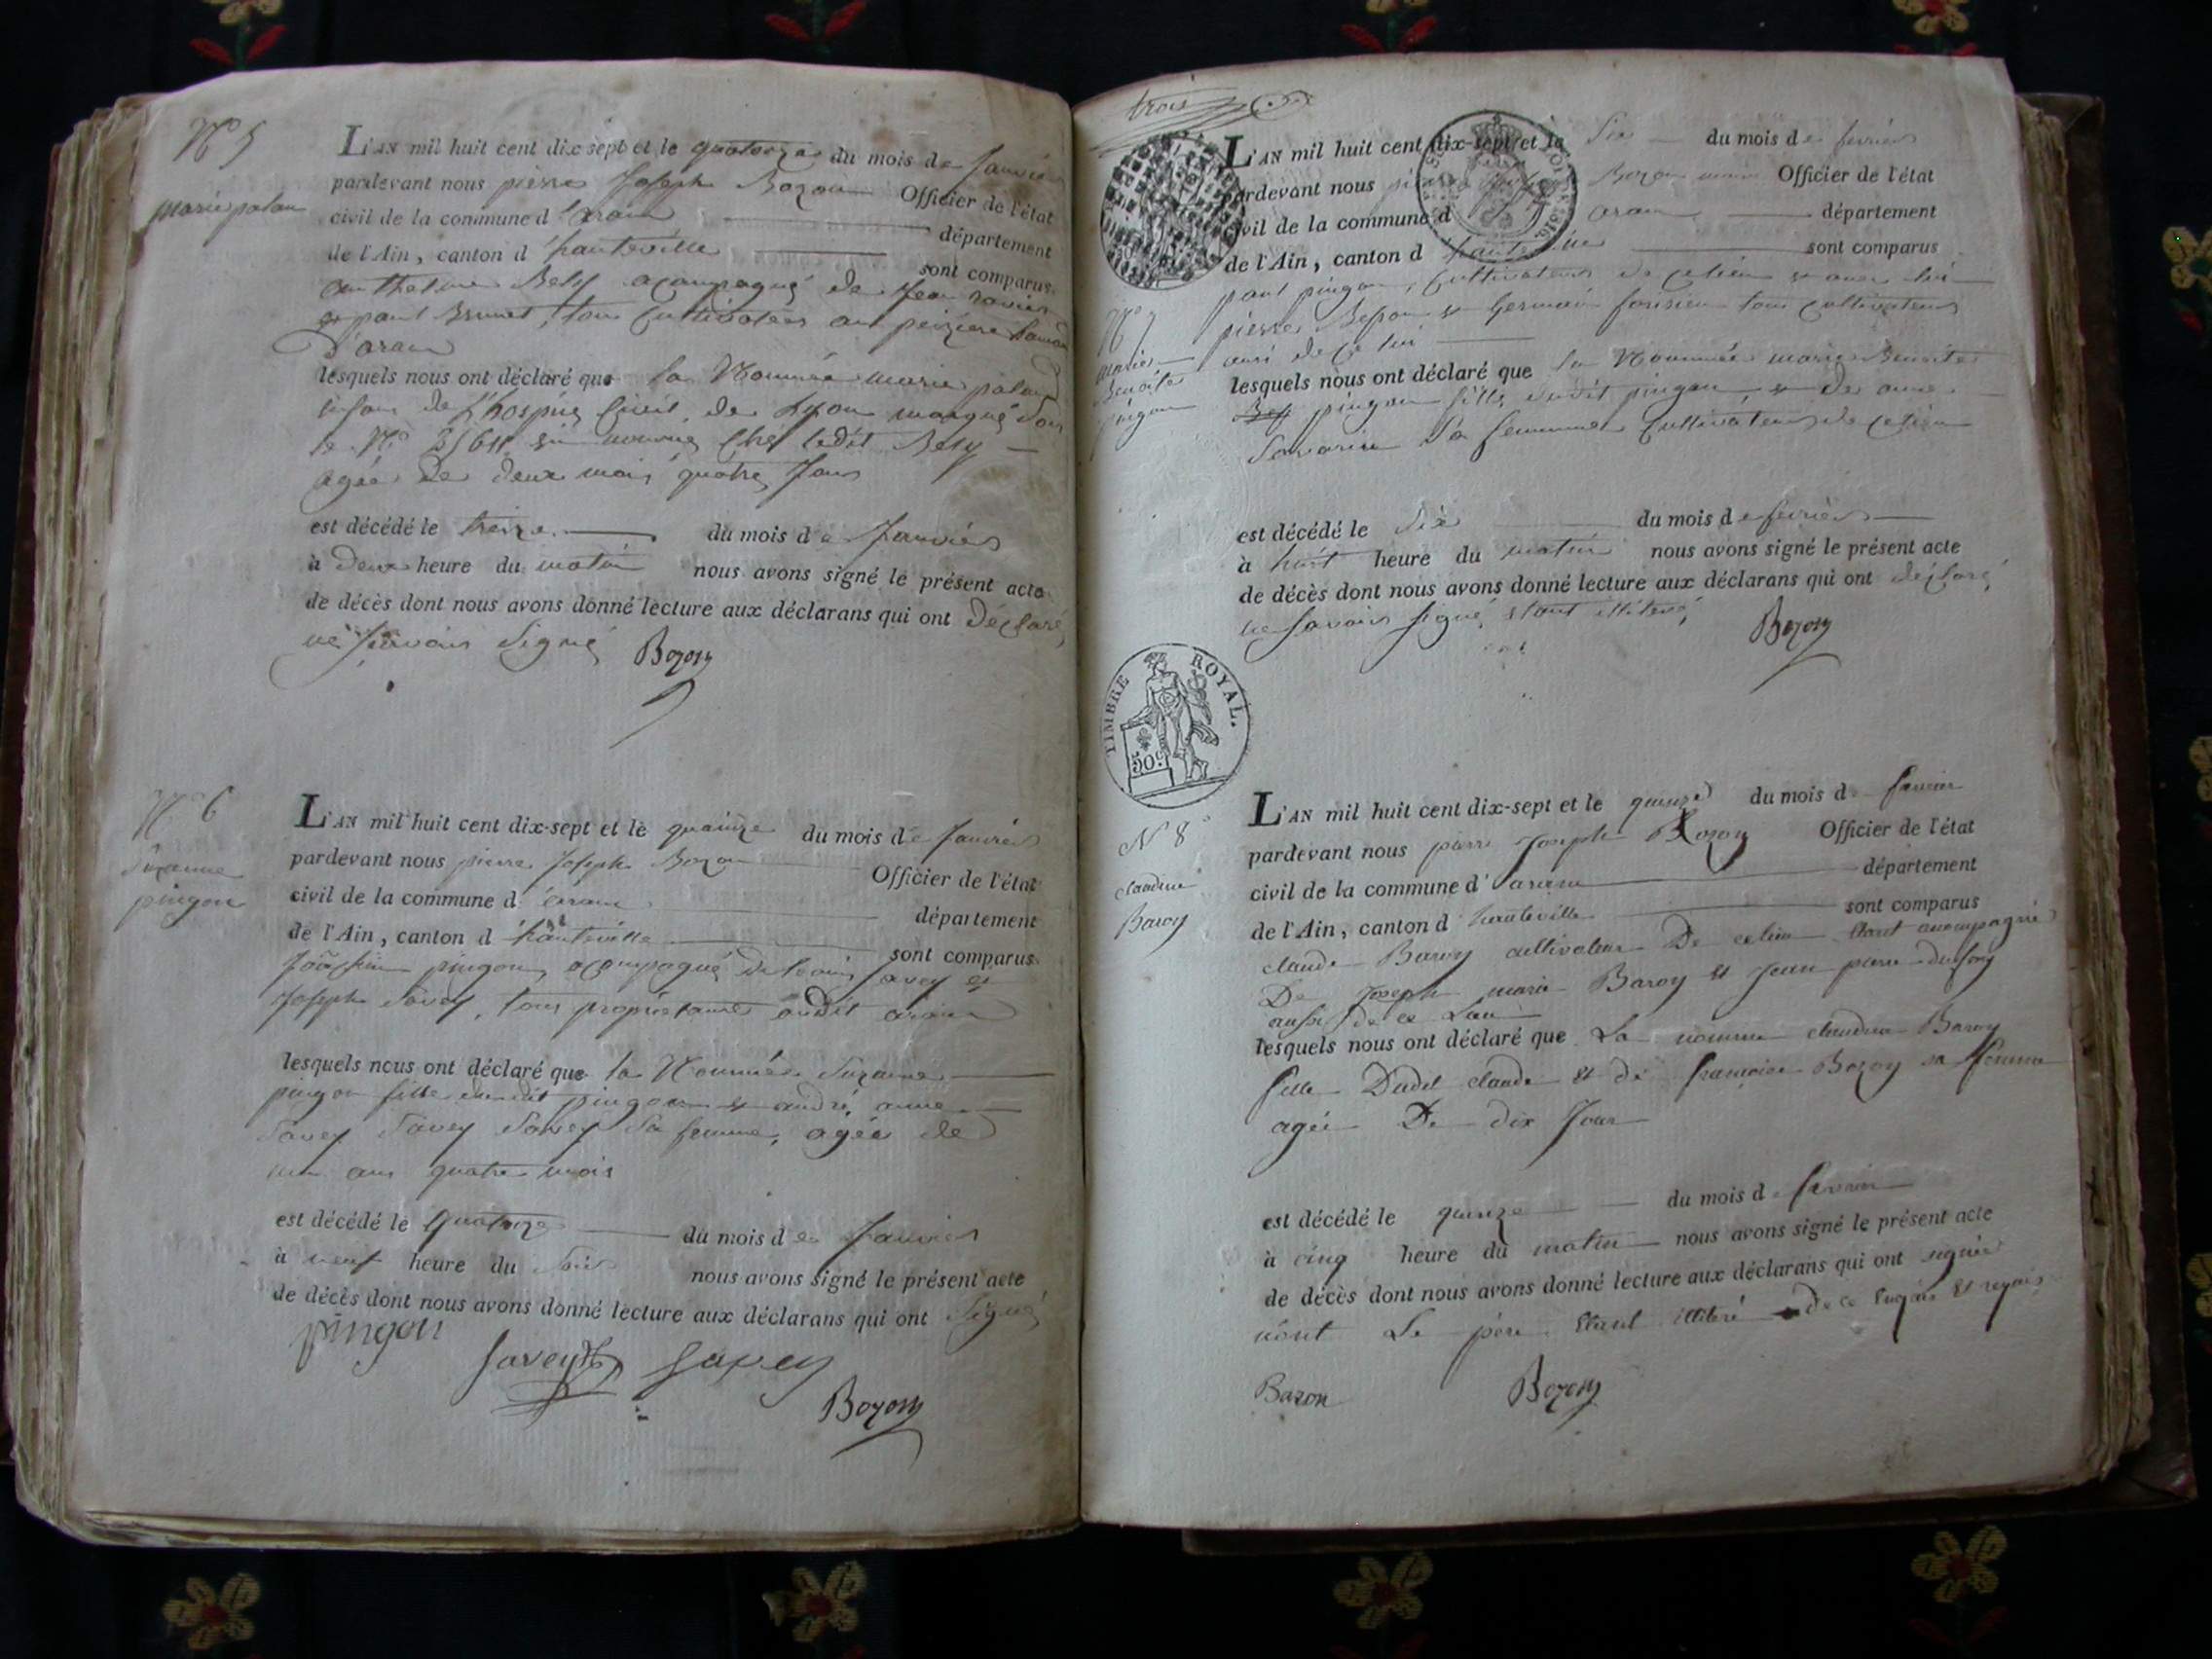 N° 5
marie palan
L'AN mil huit cent dix-sept et le quatorze du mois de Janvier
pardevant nous pierre Joseph Bozon Officier de l'état
civil de la commune d'aran département
de l'Ain, canton d'hauteville sont comparus
anthelme Bely acompagné de Jean
et paul Brunet, tous Cultivateurs
D'aran
lesquels nous ont déclaré que la Nommée marie palan
de L'hospice Civil de Lyon marqué sous
le N° chés ledit Bely
agée de deux mois quatre Jours
est décédé le treize du mois de Janvier
à deux heure du matin nous avons signé le présent acte
de décès dont nous avons donné lecture aux déclarans qui ont déclaré
ne savoir signé Bozon
N° 6
Suzanne
pingon
L'AN mil huit cent dix-sept et le quainze du mois de Janvier
pardevant nous pierre Joseph Bozon Officier de l'état
civil de la commune d'aran département
de l'Ain, canton d'hauteville sont comparus
pingon, acompagné de louis Savey et
Joseph Savey, tous propriétaires audit aran
lesquels nous ont déclaré que la Nommée Suzanne
pingon fille dudit pingon et andré anne
Savey Savey Savey Sa femme, agée de
un ans quatre mois
est décédé le quatorze du mois de Janvier
à neuf heure du Soir nous avons signé le présent acte
de décès dont nous avons donné lecture aux déclarans qui ont Signé
pingon
Savey Savey
Bozon
trois
L'AN mil huit cent dix-sept et le Six du mois de fevrier
pardevant nous pierre Joseph Bozon maire Officier de l'état
civil de la commune d aran département
de l'Ain, canton d'hauteville sont comparus
N° 7
marie
Benoite
pingon
paul pingon, Cultivateur de ce lieu et avec lui
pierre Bepon et Germain tous Cultivateurs
aussi de ce lieu
lesquels nous ont déclaré que la Nommée marie Benoite
pingon fille dudit pingon et de anne
Savarin Sa femme Cultivateurs de ce lieu
est décédé le Six du mois de fevrier
à huit heure du matin nous avons signé le présent acte
de décès dont nous avons donné lecture aux déclarans qui ont déclaré
ne savoir signé étant illiteré
Bozon
TIMBRE ROYAL.
50c
N° 8
claudine
Baroy
L'AN mil huit cent dix-sept et le quinze du mois de fevrier
pardevant nous pierre Joseph Bozon Officier de l'état
civil de la commune d'aran département
de l'Ain, canton d'hauteville sont comparus
claude Baroy cultivateur De ce lieu étant accompagné
De Joseph marie Baroy et Jean pierre
aussi de ce Lieu
lesquels nous ont déclaré que La nommée claudine Baroy
fille Dudit claude et de françoise Bozon sa femme
agée De dix Jour
est décédé le quinze du mois de fevrier
à cinq heure du matin nous avons signé le présent acte
de décès dont nous avons donné lecture aux déclarans qui ont signée
nont Le père étant illitéré de ce enquis et requis
Bazon Bozon